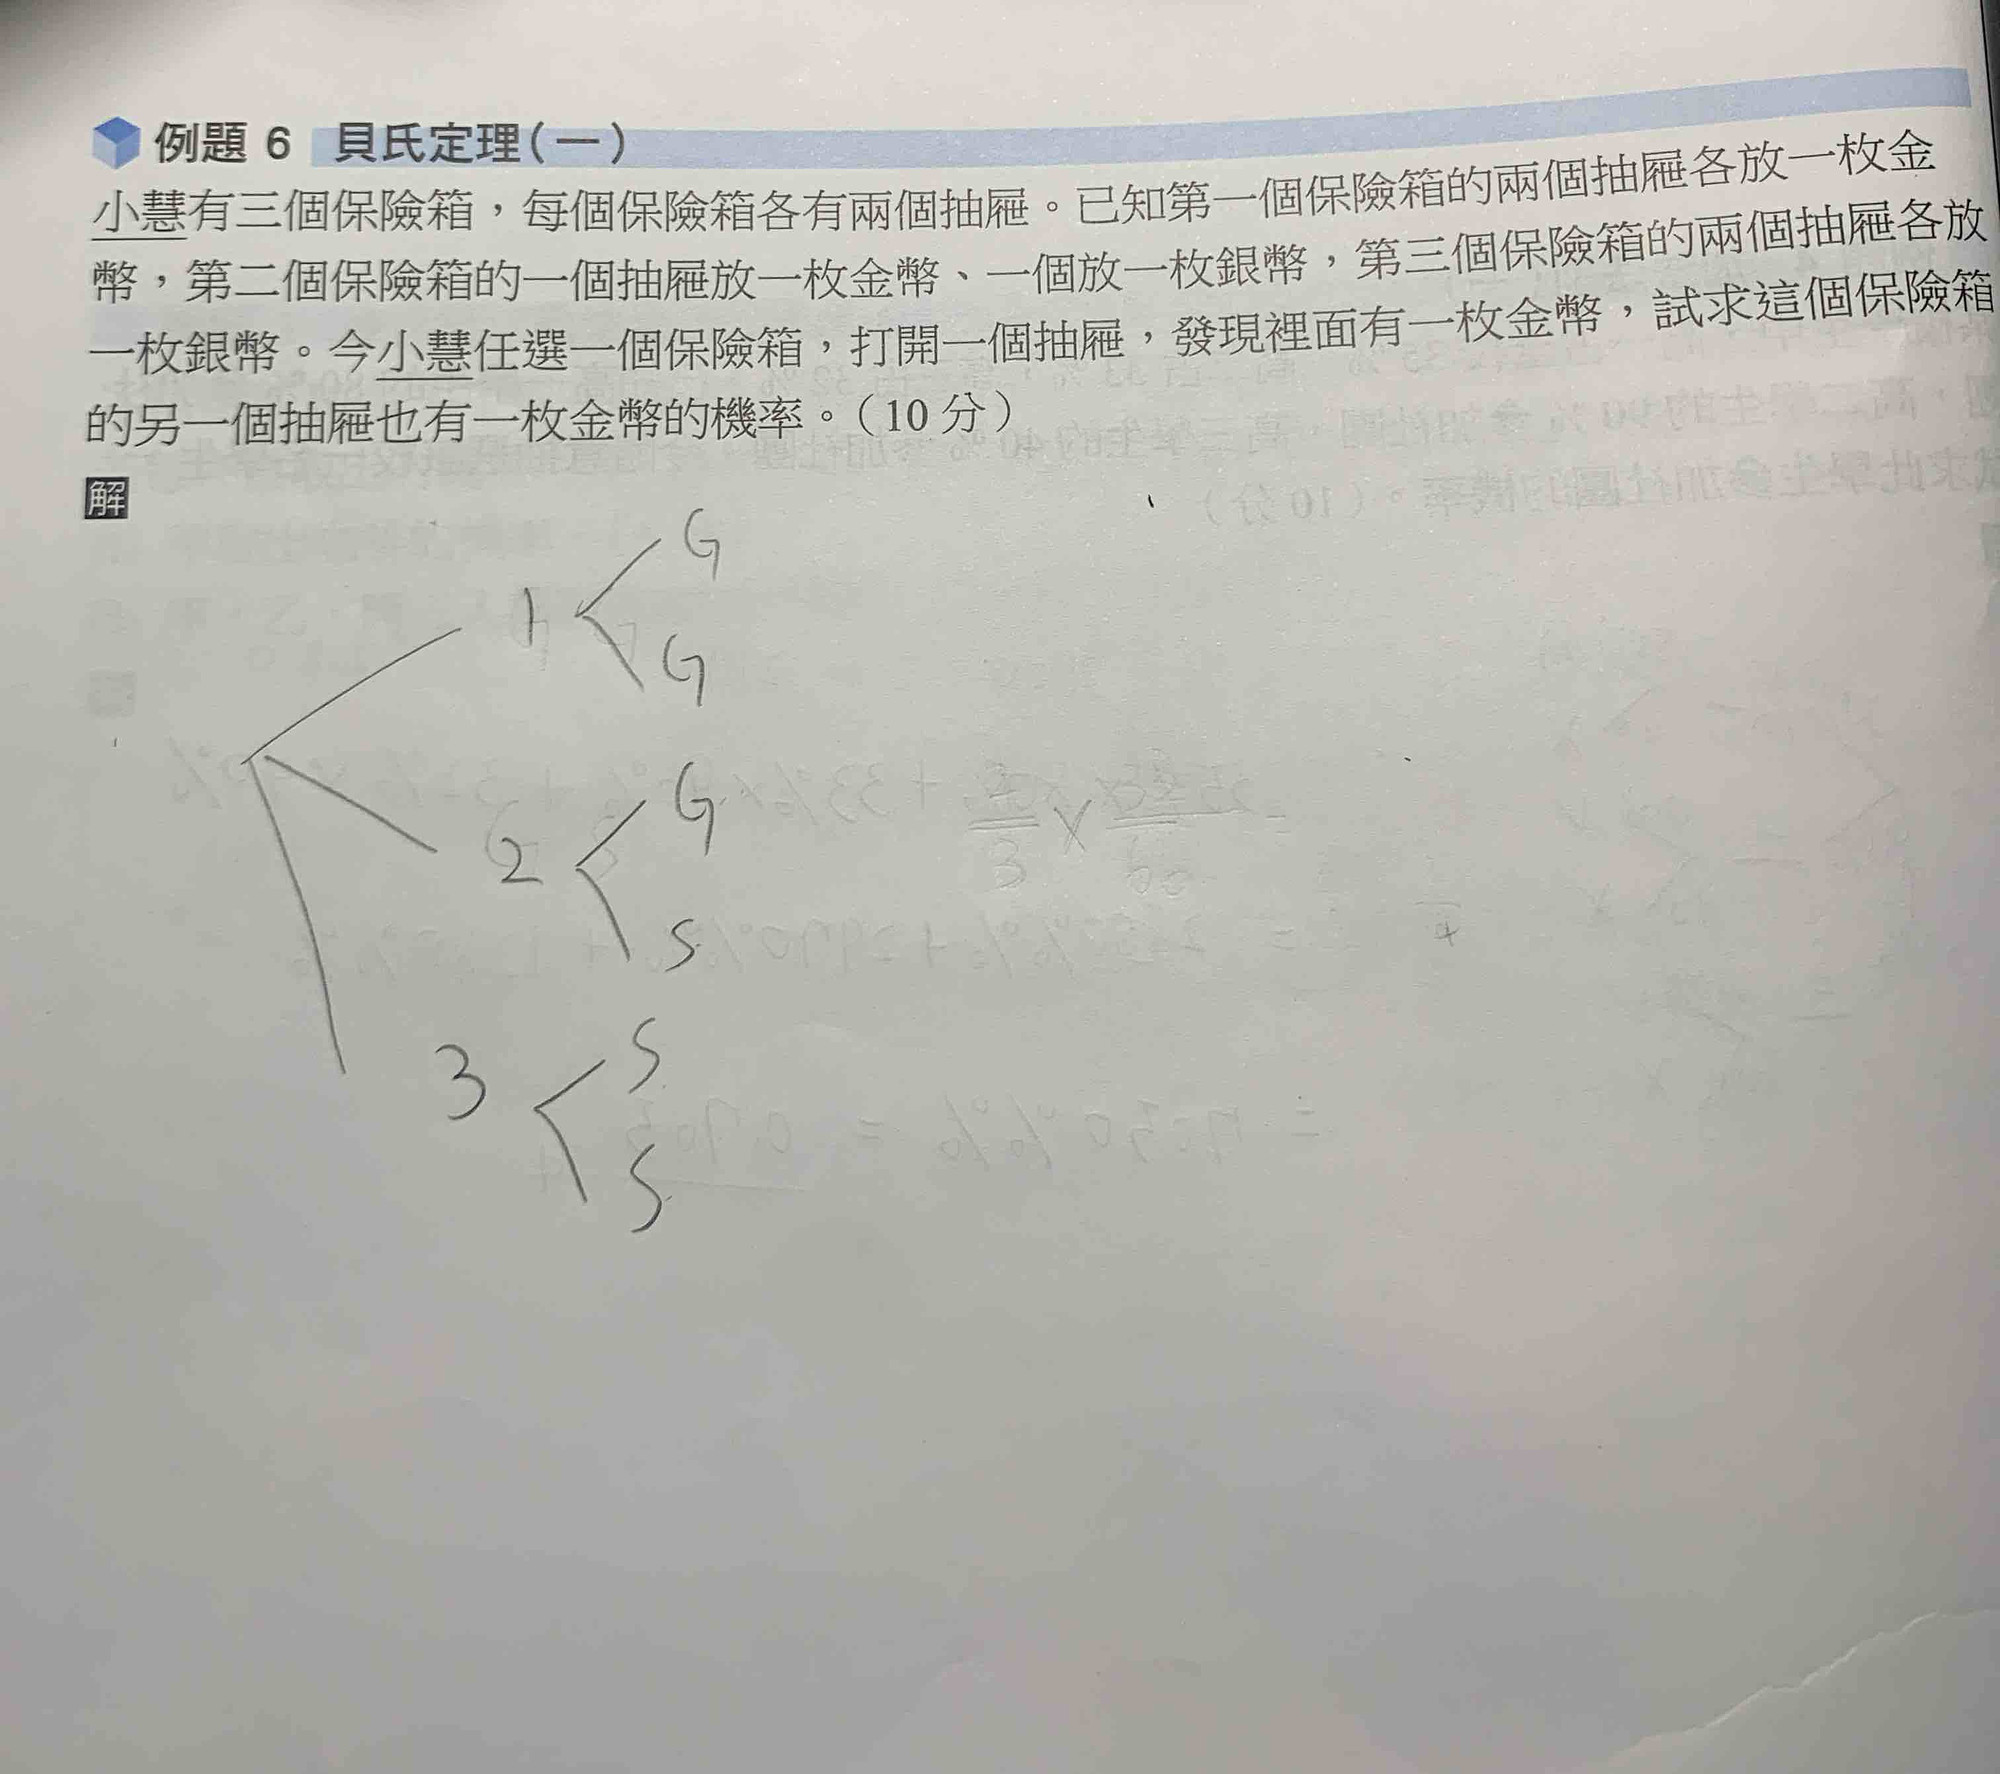 例題 6 貝氏定理(一)
小慧有三個保險箱，每個保險箱各有兩個抽屜。已知第一個保險箱的兩個抽屜各放一枚金
幣，第二個保險箱的一個抽屜放一枚金幣、一個放一枚銀幣，第三個保險箱的兩個抽屜各放
一枚銀幣。今小慧任選一個保險箱，打開一個抽屜，發現裡面有一枚金幣，試求這個保險箱
的另一個抽屜也有一枚金幣的機率。(10 分)
解
G
1
G
G
2
S
S
3
S